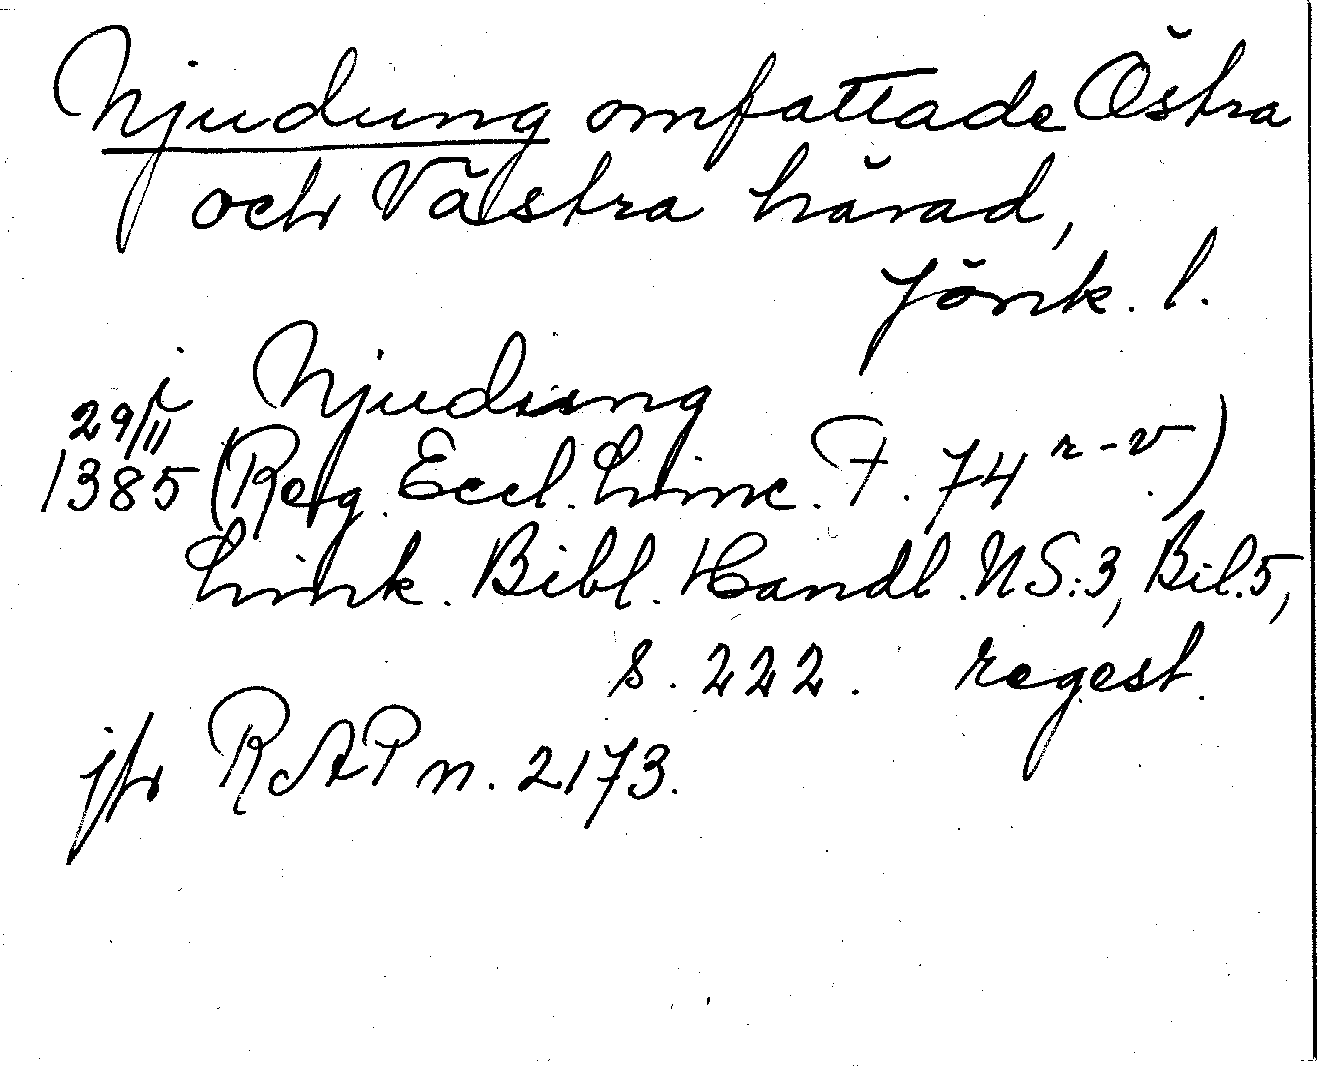 Njudung omfattade Östra
och Västra härad,
Jönk. l.
i Njudung
29/11
1385 (Reg. Eccl. Linc. F. 74 r-v)
Link. Bibl. Handl. N S:3, Bil. 5,
s. 222. regest.
jfr RAP n. 2173.